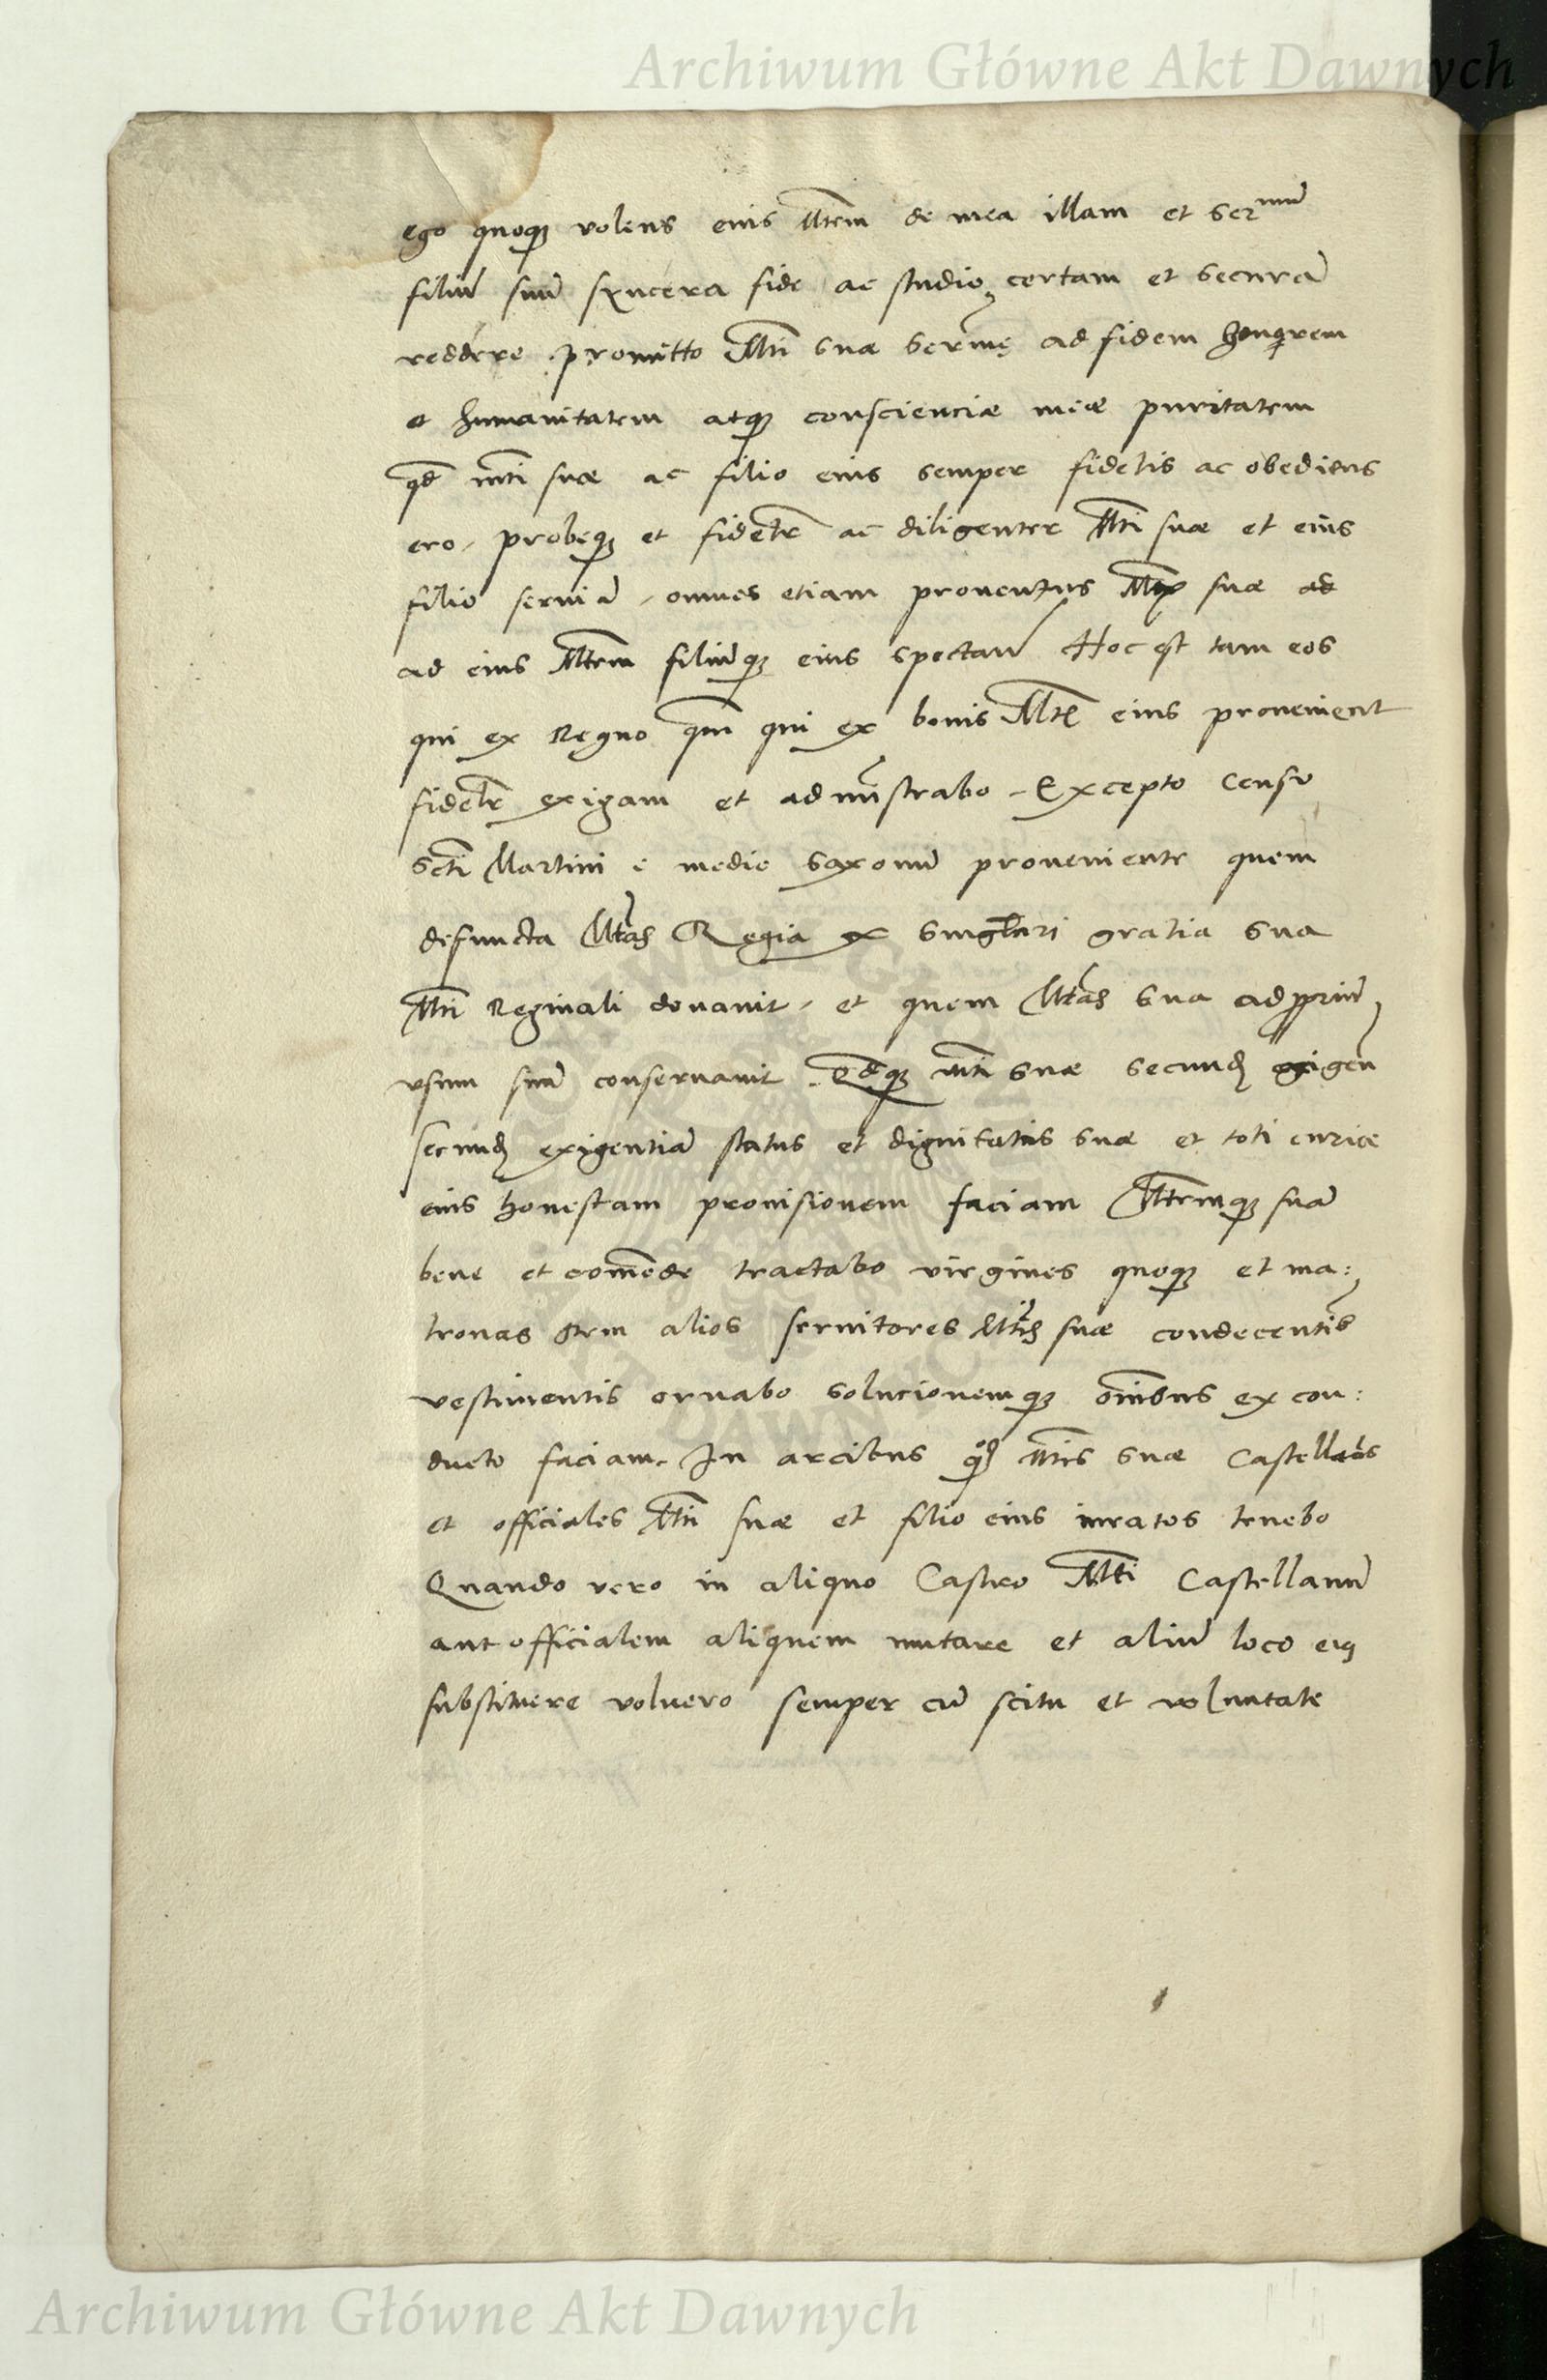 Archiwum Główne Akt Dawnych
ego quoq3 volens eius Mtem de mea illam et Ser^mũ
filiũ suũ syncera fide ac studio, certam et securã
reddere promitto Mti suæ Sermę ad fidem honorem
et humanitatem atq3 conscienciæ meæ puritatem
qd mti suæ ac filio eius semper fidelis ac obediens
ero, probeq3 et fidelr ac diligenter Mti suæ et eius
filio seruiã, omnes etiam prouentus suæ
ad eius Mtem filiũq3 eius spectan̄ Hoc est tam eos
qui ex Regno qm̃ qui ex bonis Mtis eius prouenient
fidelr exigam et admĩstrabo – Excepto censu
Scti Martini e medio Saxonũ proueniente quem
defuncta Mtas Regia ex singlari gratia sua
Mti Reginali donauit, et quem Mtas sua ad pprium
vsum suũ conseruauit. Qdq3 mti suæ secund exigen
secund exigentiã status et dignitatis suæ et toti curiæ
eius honestam prouisionem faciam Mtemq3 suã
bene et comode tractabo virgines quoq3 et ma:
tronas item alios seruitores Mtis suæ condecentibs
vestimentis ornabo solucionemq3 omĩbus ex con:
ducto faciam. In arcibus Mtis suæ Castellãos
et officiales Mti suæ et filio eius iuratos tenebo
Quando vero in aliquo Castro Mti Castellanũ
aut officialem aliquem mutare et aliũ loco eiꝰ
substituere voluero semper cũ scitu et voluntate
Archiwum Główne Akt Dawnych